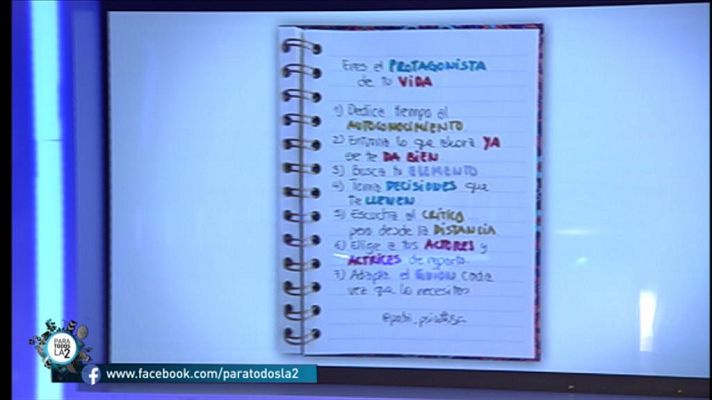 Eres el PROTAGONISTA
de tu VIDA
1) Dedica tiempo al
AUTOCONOCIMIENTO.
2) Entrena lo que ahora YA
se te DA BIEN
3) Busca tu ELEMENTO
4) Toma DECISIONES que
te LLENEN
5) Escucha al CRÍTICO
pero desde la DISTANCIA
6) Elige a tus ACTORES y
ACTRICES de reparto.
7) Adapta el GUION cada
vez que lo necesites
PARA
TODOS
LA2
www.facebook.com/paratodosla2